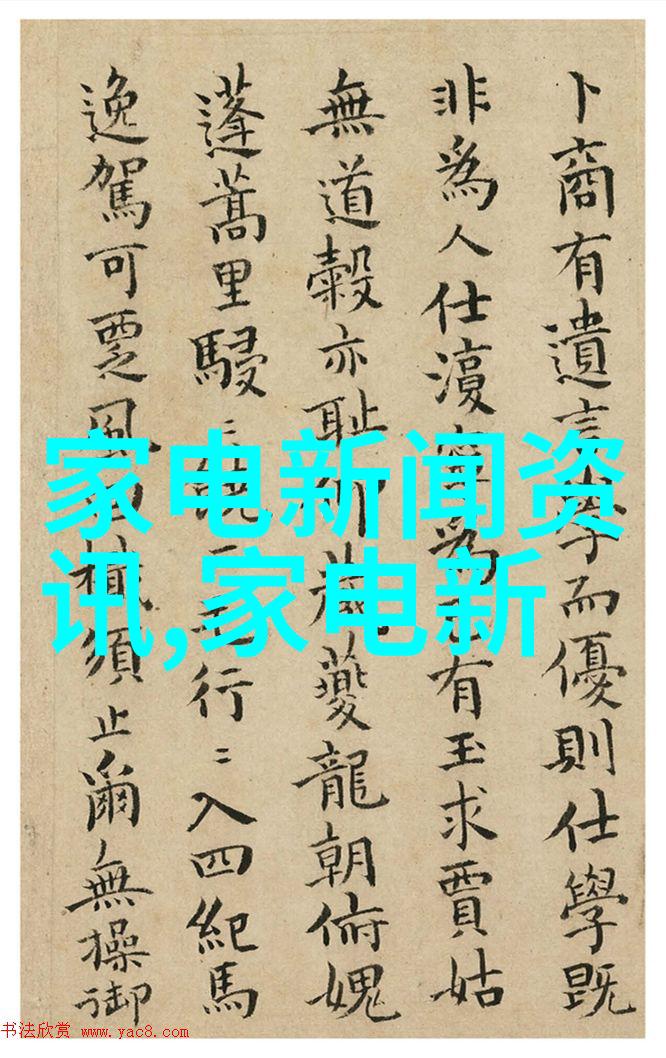 卜商有遺言學而優則仕學既
非為人仕濅寧為己有玉求賈姑
無道穀亦恥 夔龍朝俯媿
蓬蒿里駸〻 行〻入四紀馬
逸駕可覂風 檝須止爾無操御
家电新闻资
讯,家电新
书法欣赏 www.yac8.com